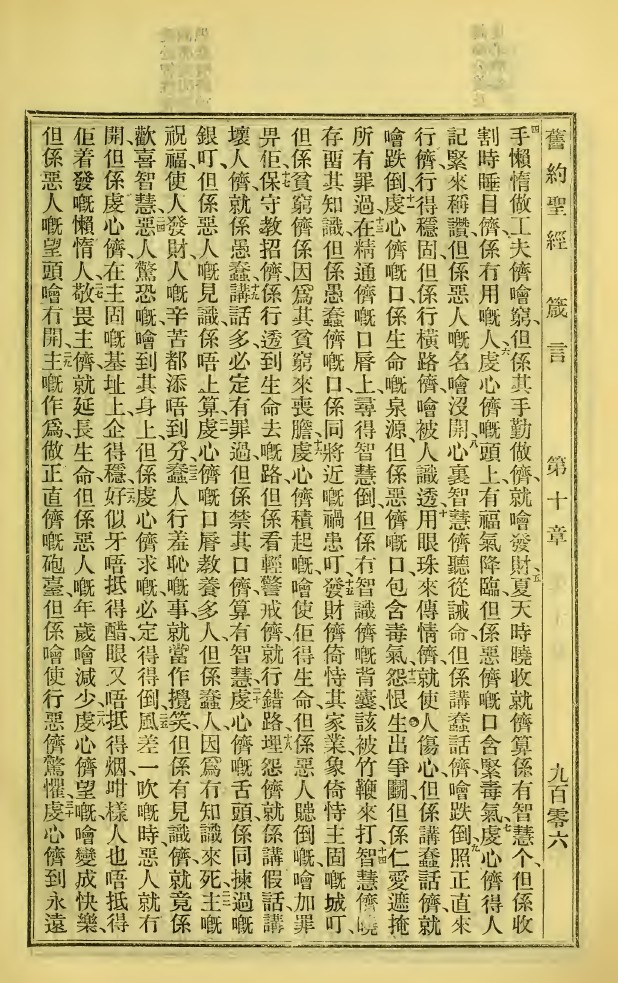 舊約聖經 箴言 第十章 九百零六
四手懶惰做工夫儕噲窮、但係其手勤做儕、就噲發財、五夏天時曉收就儕算係有智慧个、但係收
割時睡目儕、係冇用嘅人、六虔心儕嘅頭上有福氣降臨、但係惡儕嘅口含緊毒氣、七虔心儕得人
記緊來稱讚、但係惡人嘅名噲沒開、八心裏智慧儕聽從誡命、但係講蠢話儕、噲跌倒、九照正直來
行儕、行得穩固、但係行橫路儕、噲被人識透、十用眼珠來傳情儕、就使人傷心、但係講蠢話儕就
噲跌倒、十一虔心儕嘅口係生命嘅泉源、但係惡儕嘅口包含毒氣、十二怨恨生出爭鬭、但係仁愛遮掩
所有罪過、十三在精通儕嘅口脣上、尋得智慧倒、但係冇智識儕嘅背囊該被竹鞭來打、十四智慧儕曉
存畱其知識、但係愚蠢儕嘅口、係同將近嘅禍患叮、十五發財儕倚恃其家業、象倚恃主固嘅城叮、
但係貧窮儕係因爲其貧窮來喪膽、十六虔心儕積起嘅、噲使佢得生命、但係惡人賺倒嘅、噲加罪
畀佢、十七保守教招儕、係行透到生命去嘅路、但係看輕警戒儕、就行錯路、十八埋怨儕就係講假話、講
壞人儕就係愚蠢、十九講話多必定有罪過、但係禁其口儕、算有智慧、二十虔心儕嘅舌頭係同揀過嘅
銀叮、但係惡人嘅見識係唔上算、二一虔心儕嘅口脣教養多人、但係蠢人因爲冇知識來死、二二主嘅
祝福使人發財、人嘅辛苦都添唔到分、二三蠢人行羞恥嘅事、就當作攪笑、但係有見識儕就竟係
歡喜智慧、二四惡人驚恐嘅、噲到其身上、但係虔心儕求嘅必定得得倒、二五風差一吹嘅時、惡人就冇
開、但係虔心儕在主固嘅基址上企得穩、二六好似牙唔抵得醋、眼又唔抵得烟、咁樣人也唔抵得
佢着發嘅懶惰人、二七敬畏主儕就延長生命、但係惡人嘅年歲噲減少、二八虔心儕望嘅噲變成快樂、
但係惡人嘅望頭噲冇開、二九主嘅作爲、做正直儕嘅砲臺、但係噲使行惡儕驚懼、三十虔心儕到永遠